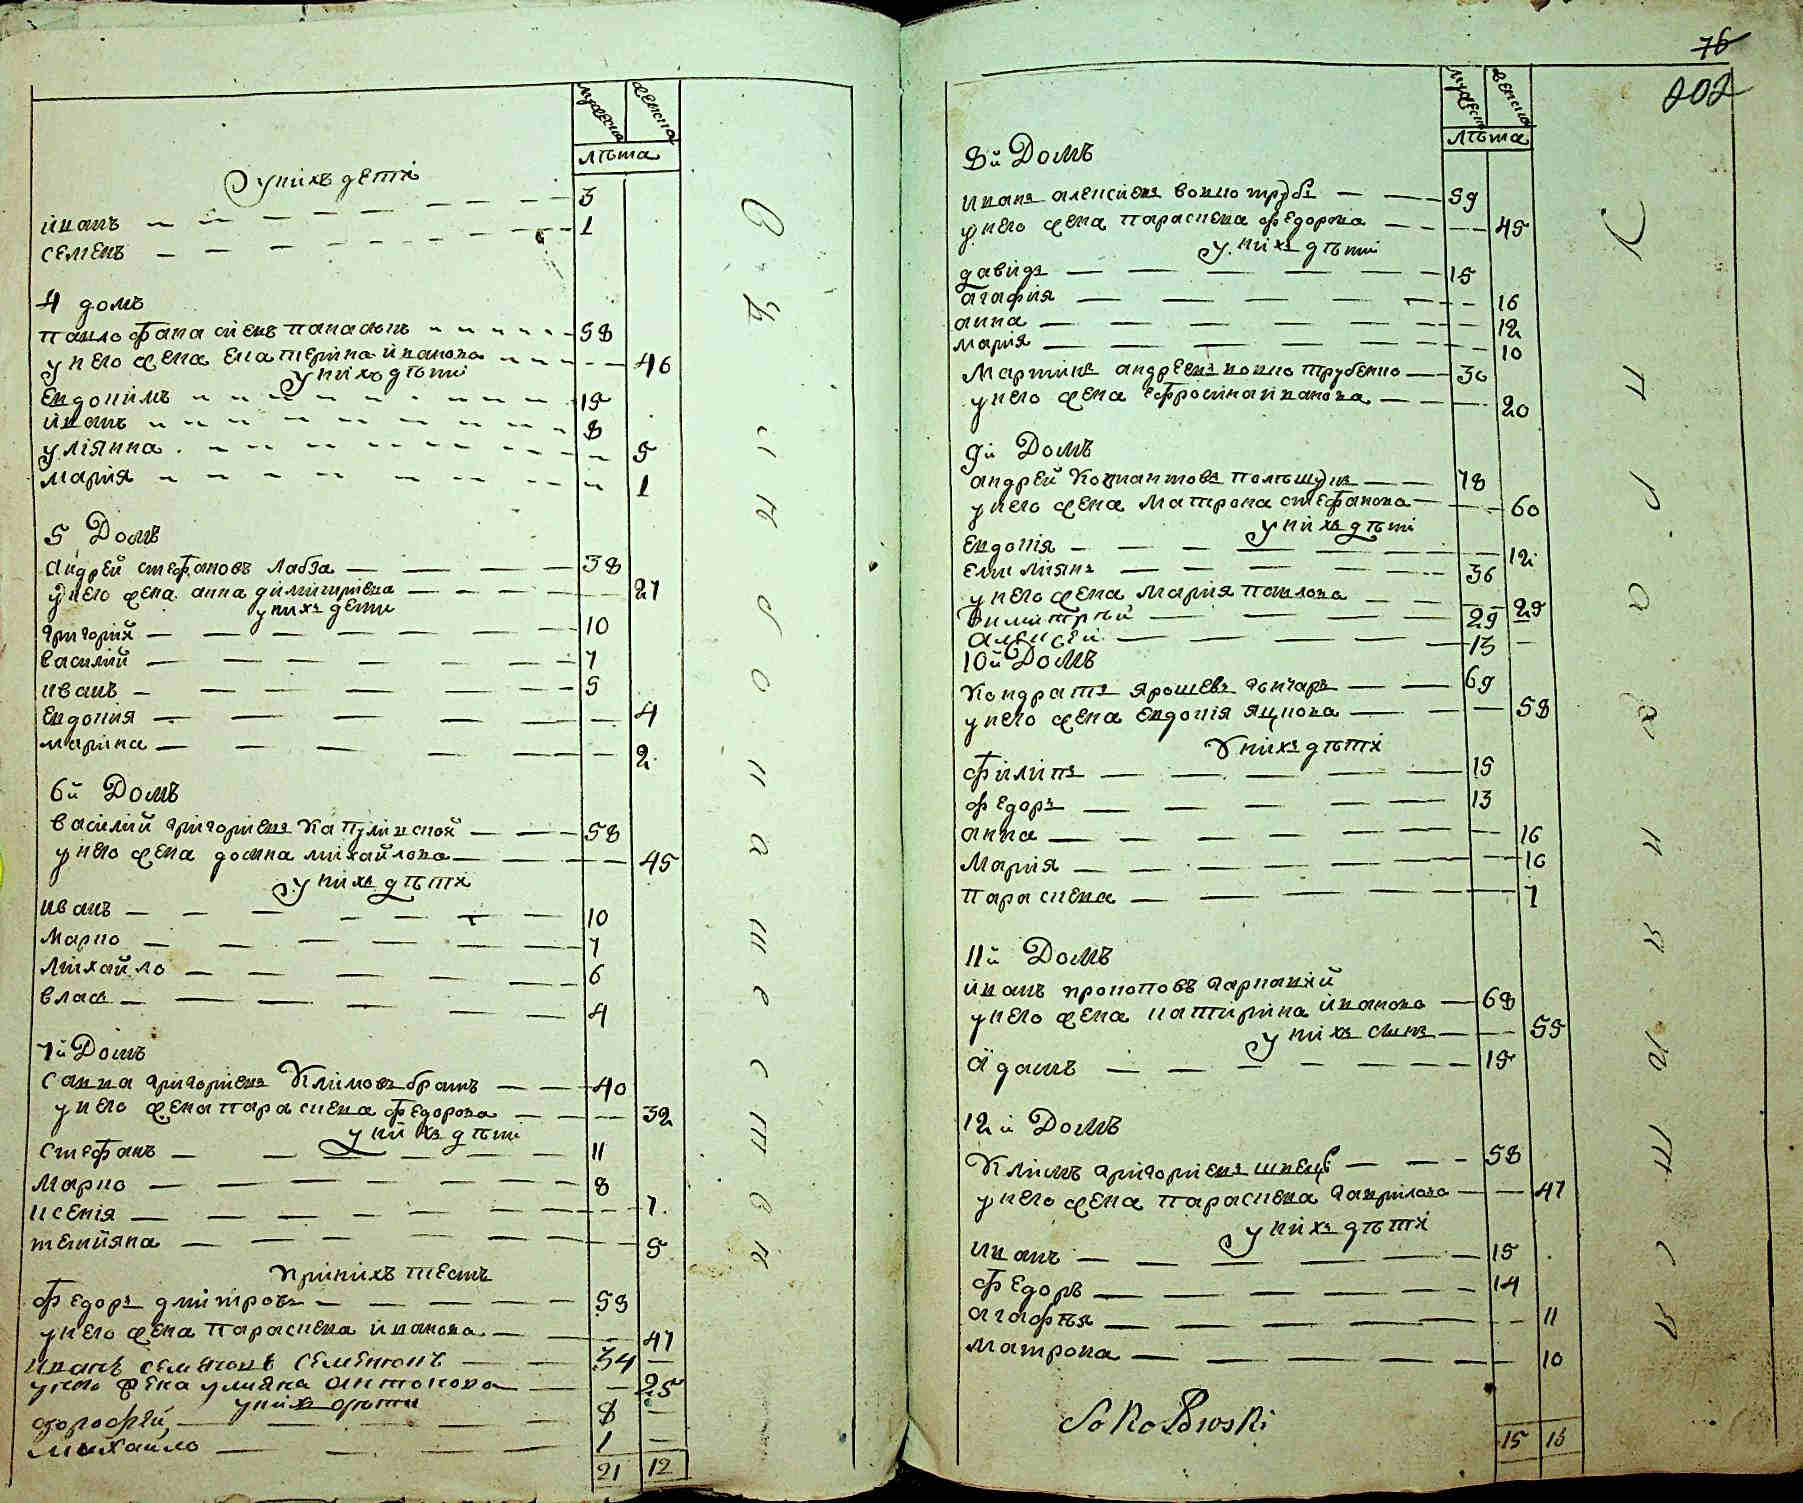 мужеска женска
лѣта
у нихъ дети
иванъ 3
семенъ 1
4 домъ
павло афанасиевъ панасюкъ 58
у него жена екатерина иванова 46
у нихъ дѣти
Евдокимъ 15
иванъ 8
улиянна 5
мария 1
5 Домъ
андрей стефановъ лабза 38
у него жена анна димитриева 27
у нихъ дети
григорий 10
василий 7
иванъ 5
Евдокия 4
марина 2
6й Домъ
василий григориевъ капулинской 58
у него жена домна михайлова 45
у нихъ дѣти
иванъ 10
марко 7
михайло 6
влас 4
7й Домъ
савка григориевъ климовъ братъ 40
у него жена параскева федорова 32
у нихъ дѣти
стефанъ 11
марко 8
ксения 7
темияна 5
при нихъ тесть
федоръ дмитровъ 58
у него жена параскева иванова 47
иванъ семеновъ семенюкъ 34
у него жена улияна антонова 25
у нихъ дѣти
дорофей 8
михайло 1
21 12
76
202
мужеска женска
лѣта
8й Домъ
иванъ алексиевъ вовкотрубъ 59
у него жена параскева федорова 45
у нихъ дѣти
давидъ 15
агафия 16
анна 12
мария 10
Мартинъ андреевъ вовкотрубенко 30
у него жена ефросина иванова 20
9й Домъ
андрей костантовъ полѣщукъ 78
у него жена матрона стефанова 60
у нихъ дѣти
Евдокия 12
Емилиянъ 36
у него жена мария павлова 29
Димитрий 29
алексей 13
10й Домъ
Кондратъ ярошевъ гончаръ 69
у него жена Евдокия яцкова 58
у нихъ дѣти
филипъ 15
федоръ 13
анна 16
мария 10
параскева 7
11й Домъ
иванъ прокоповъ гарнакий 68
у него жена катирина иванова 55
у нихъ сынъ
адамъ 15
12й Домъ
климъ григориевъ швецъ 58
у него жена параскева гаврилова 47
у нихъ дѣти
иванъ 15
федоръ 14
агафья 11
матрона 10
Sokołowski
15 15